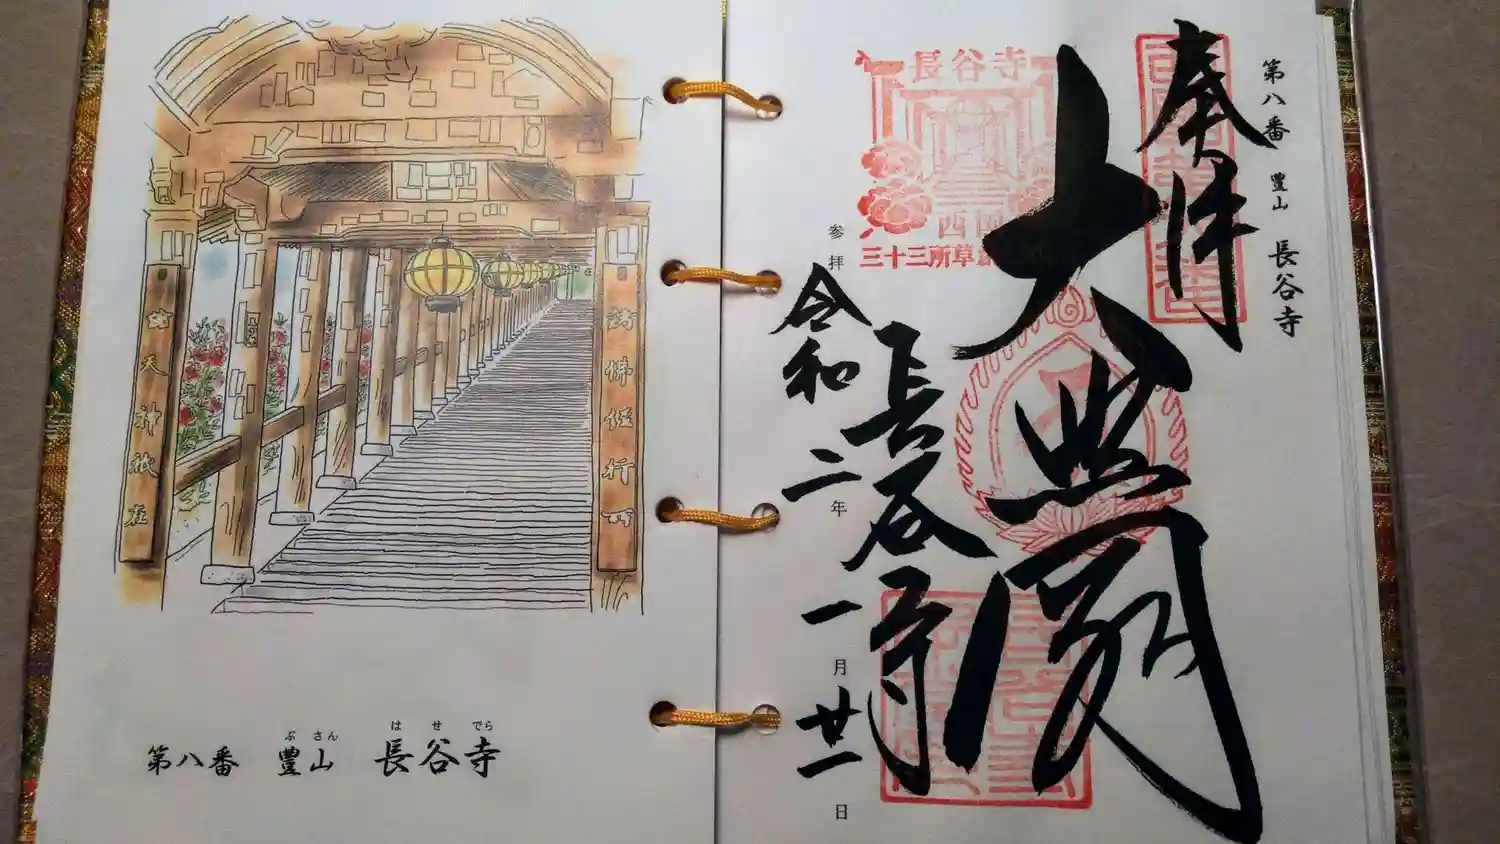 第八番 豐山 長谷寺
奉拝
大悲閣
長谷寺
参拝
令和二年一月廿一日
長谷寺
西国
三十三所草創
諸天神祇在
諸佛経行所
ぶさん はせでら
第八番 豐山 長谷寺